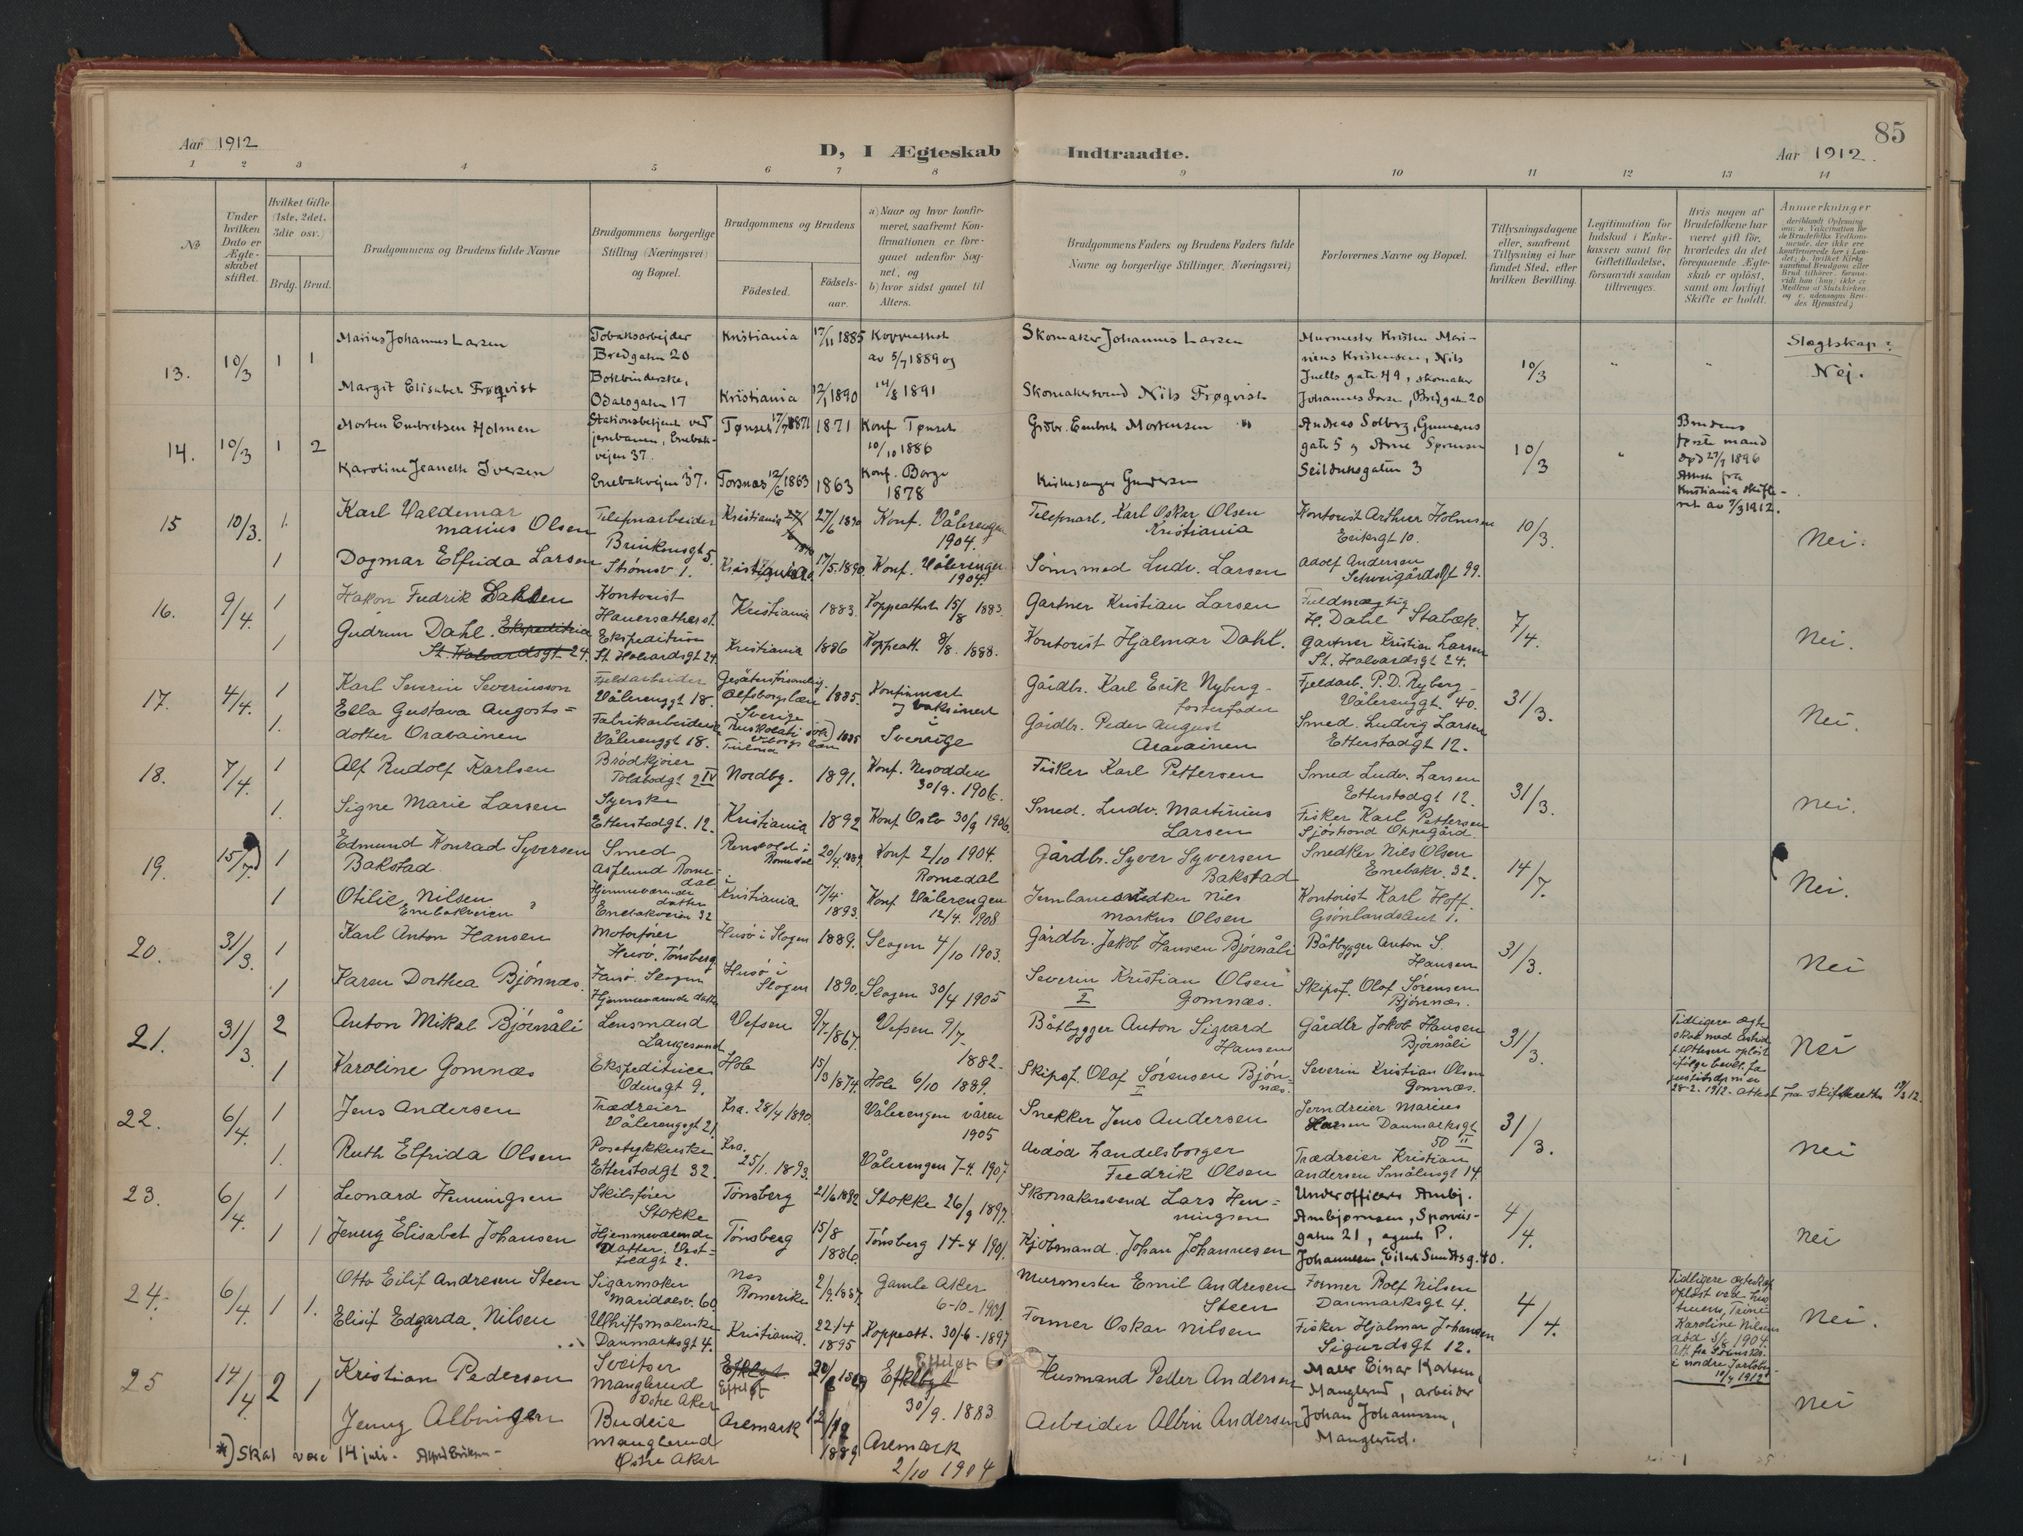 85
Aar 1912
D, I Ægteskab Indtraadte.
Aar 1912.
1 2 3 4 5 6 7 8 9 10 11 12 13 14
No
Under hvilken Dato er Ægteskabet stiftet.
Hvilket Gifte (1ste, 2det, 3die osv.)
Brdg. Brud.
Brudgommens og Brudens fulde Navne
Brudgommens borgerlige Stilling (Næringsvei) og Bopæl.
Brudgommens og Brudens
Fødested.
Fødselsaar.
a) Naar og hvor konfirmeret, saafremt Konfirmationen er foregaaet udenfor Sognet, og
b) hvor sidst gaaet til Alters.
Brudgommens Faders og Brudens Faders fulde Navne og borgerlige Stillinger, (Næringsvei)
Forlovernes Navne og Bopæl.
Tillysningsdagene eller, saafremt Tillysning ei har fundet Sted, efter hvilken Bevilling.
Legitimation for Indskud i Enkekassen samt for Giftetilladelse, forsaavidt saadan tiltrænges.
Hvis nogen af Brudefolkene har været gift før, hvorledes da det foregaaende Ægteskab er opløst, samt om lovligt Skifte er holdt.
Anmerkninger
13. 10/3 1 1
Marius Johannes Larsen
Tobaksarbejder
Bredgaten 20
Kristiania 17/11 1885
av 5/7 1889 og
Skomaker Johannes Larsen
Murmester Kristen Mariniens Kristensen, Nils
Juells gate 49, skomaker
Johannes Larsen, Bredgaten 20
10/3
Slegtskap?
Nej.
Margit Elisabet Frøqvist
Bokbinderske,
Odalsgaten 17
Kristiania 12/1 1890
14/8 1891
Skomakersvend Nils Frøqvist
14. 10/3 1 2
Morten Embretsen Holmen
Stationsbetjent ved
jernbanen, Enebakvejen 37.
Tønset 17/7 1871 1871
Konf Tønset
10/10 1886
Grdbr. Embret Mortensen
Andreas Solberg, Gunnerus
gate 5 og Arne Sørensen
Seilduksgaten 3
10/3
Brudens
første mand
død 27/7 1896
Attest fra
Kristiania skifteret av 7/3 1912.
Karoline Jeanette Iversen
Enebakvejen 37.
Torsnæs 12/6 1863 1863
Konf. Borge
1878
Kirkesanger Gundersen
15 10/3. 1.
Karl Valdemar
Marius Olsen
Telefonarbeider
Brinkensgt 5.
Kristiania 27/6 1890
Konf. Vålerengen
1904.
Telefonarb. Karl Oskar Olsen
Kristiania
Kontorist Arthur Holmsen
Eriksgt 10.
10/3.
Nei.
1
Dagmar Elfrida Larsen
Strømsv 1.
Kristiania 17/5. 1890.
Konf. Vålerengen
1904.
Smed Ludv. Larsen
Adolf Andersen
Schweigårdsgt 99.
16. 9/4. 1
Håkon Fredrik Larsen
Kontorist
Kristiania 1883.
Koppeattest 15/8 1883.
Gartner Kristian Larsen
Fuldmægtig
H. Dahl Stabæk.
7/4.
Nei.
1
Gudrun Dahl. Ekspeditrice
St. Halvardsgt 24.
Ekspeditrice
St. Halvardsgt 24.
Kristiania 1886
Koppeatt. 8/8. 1888.
Kontorist Hjalmar Dahl.
Gartner Kristian Larsen
St. Halvardsgt 24.
17. 4/4. 1
Karl Severin Severinsson
Fjeldarbeider
Vålerenggt 18.
Alfsborgs læn
Sverige
1885.
Konfirmert
og vaksinert
i
Sverige
Gårdbr. Karl Erik Nyberg
fosterfader
Fjeldarb. P. D. Ryberg
Vålerenggt. 40.
31/3.
Nei.
1.
Ella Gustava Augostsdotter Oravainen
Fabrikarbeiderske
Vålerenggt 18.
Viborgs län
1885
Gårdbr. Peder August
Aravainen
Smed. Ludvig Larsen
Etterstadgt 12.
18. 7/4. 1
Alf Rudolf Karlsen
Brødkjører
Toldbodgt 2 IV
Nordby. 1891.
Konf. Nesodden
30/9. 1906.
Fisker Karl Pettersen
Smed Ludv. Larsen
Etterstadgt 12.
31/3.
Nei.
1.
Signe Marie Larsen
Syerske
Etterstadgt. 12.
Kristiania 1892
Konf Oslo 30/9 1906.
Smed. Ludv. Martinius
Larsen
Fisker Karl Pettersen
Sjøstrand Oppegård.
19. 15/7 1
Edmund Konrad Syversen
Bakstad.
Smed
Asflund Romedal
Romedal
20/4. 1889.
Konf 2/10 1904.
Romedal
Gårdbr. Syver Syversen
Bakstad
Snedker Nils Olsen
Enebakv. 32.
14/7.
Nei.
1
Otilie Nilsen
Enebakveien
Hjemmeværende
datter
Enebakveien 32
Kristiania 17/4 1893.
Konf Vålerengen
12/4. 1908
Jernbanesnedker Nils
Markus Olsen
Kontorist Karl Hoff.
Grønlandsleret 1.
20. 31/3. 1
Karl Anton Hansen
Motorfører
Husø. Tønsberg
Husø i Slagen 1889.
Slagen 4/10 1903.
Gårdbr. Jakob Hansen Bjørnåli
Båtbygger Anton S.
Hansen
31/3.
Nei
1
Karen Dorthea Bjønnæs.
Husø. Slagen
Hjemmeværende datter
Husø i
Slagen
1890.
Slagen 30/4 1905
Severin Kristian Olsen
I Gomnæs.
Skipsf. Olof Sørensen
Bjønnæs.
21. 31/3. 2
Anton Mikal Bjørnåli
Lensmand
Langesund
Vefsen 9/7 1867.
Vefsen 9/7
1882.
Båtbygger Anton Sigvard
Hansen
Gårdbr Jakob Hansen
Bjørnåli
31/3.
Tidligere ægteskab med Astrid
f. Ottesen opløst
ifølge bevilg. fra
justisdep. m. av
28-2. 1912. attest fra skifteretten 19/3 12.
Nei
1
Karoline Gomnæs
Ekspeditrice
Odensgt 9.
Hole 15/3 1874.
Hole 6/10 1889.
Skipsf. Olof Sørensen Bjønnæs.
Severin Kristian Olsen
Gomnæs.
22. 6/4. 1
Jens Andersen
Trædreier
Vålerenggt 21.
Kra. 28/4 1890.
Vålerengen våren
1905
Snekker Jens Andersen
Jerndreier Marius
Larsen Danmarksgt
50 II
31/3.
Nei
1.
Ruth Elfrida Olsen
Posetykkerske
Etterstadgt 32.
Kra.
25/1. 1893.
Vålerengen 7-4. 1907.
Avdød Handelsborger
Fredrik Olsen
Trædreier Kristian
Andersen Smålensgt 14.
23. 6/4. 1
Leonard Henningsen
Skibsfører
Stokke
Tønsberg 21/6 1882
Stokke 26/9 1897.
Skomakersvend Lars Henningsen
Underofficer Ambj.
Ambjørnsen, Sporveisgaten 21, agent P.
Johannesen, Eilert Sundts g. 40.
4/4.
Nei
1 1
Jenny Elisabet Johansen
Hjemmeværende
Datter. Vestfoldgt 2.
Tønsberg 15/8 1886.
Tønsberg 14-4 1901.
Kjøbmand. Johan Johannesen
24. 6/4. 1 1.
Otto Eilif Andresen Steen
Sigarmaker
Maridalsv. 60
Nes
Romerike
2/9. 1887.
Gamle Aker
6-10-1901.
Murmester Emil Andresen
Steen
Former Rolf Nilsen
Danmarksgt 4.
4/4.
Nei.
Elisif Edgarda Nilsen
Danmarksgt 4.
Kristiania. 22/4 1895
Koppeatt. 30/6-1897
Former Oskar Nilsen
Fisker Hjalmar Johansen
Sigurdsgt 12.
25 14/4. 2 1
Kristian Pedersen
Sveitser
Manglerud
Østre Aker
Efteløt
Efteløt
30/9. 1883
Husmand Peder Andersen
Maler Einar Karlsen,
Manglerud, arbeider
Johan Johannesen,
Manglerud.
Tidligere ægteskap
opløst ved hustruens, Trine
Karoline Nilsens
død 5/8 1904.
i nordre Jarlsberg
19/4 1912
Nei
Jenny Albinsen
Budeie
Manglerud
Østre Aker
Aremark 12/12 1889
Aremark
2/10 1904
Arbeider Albin Andersen
*) Skal være 14 juli. Alfred Eriksen